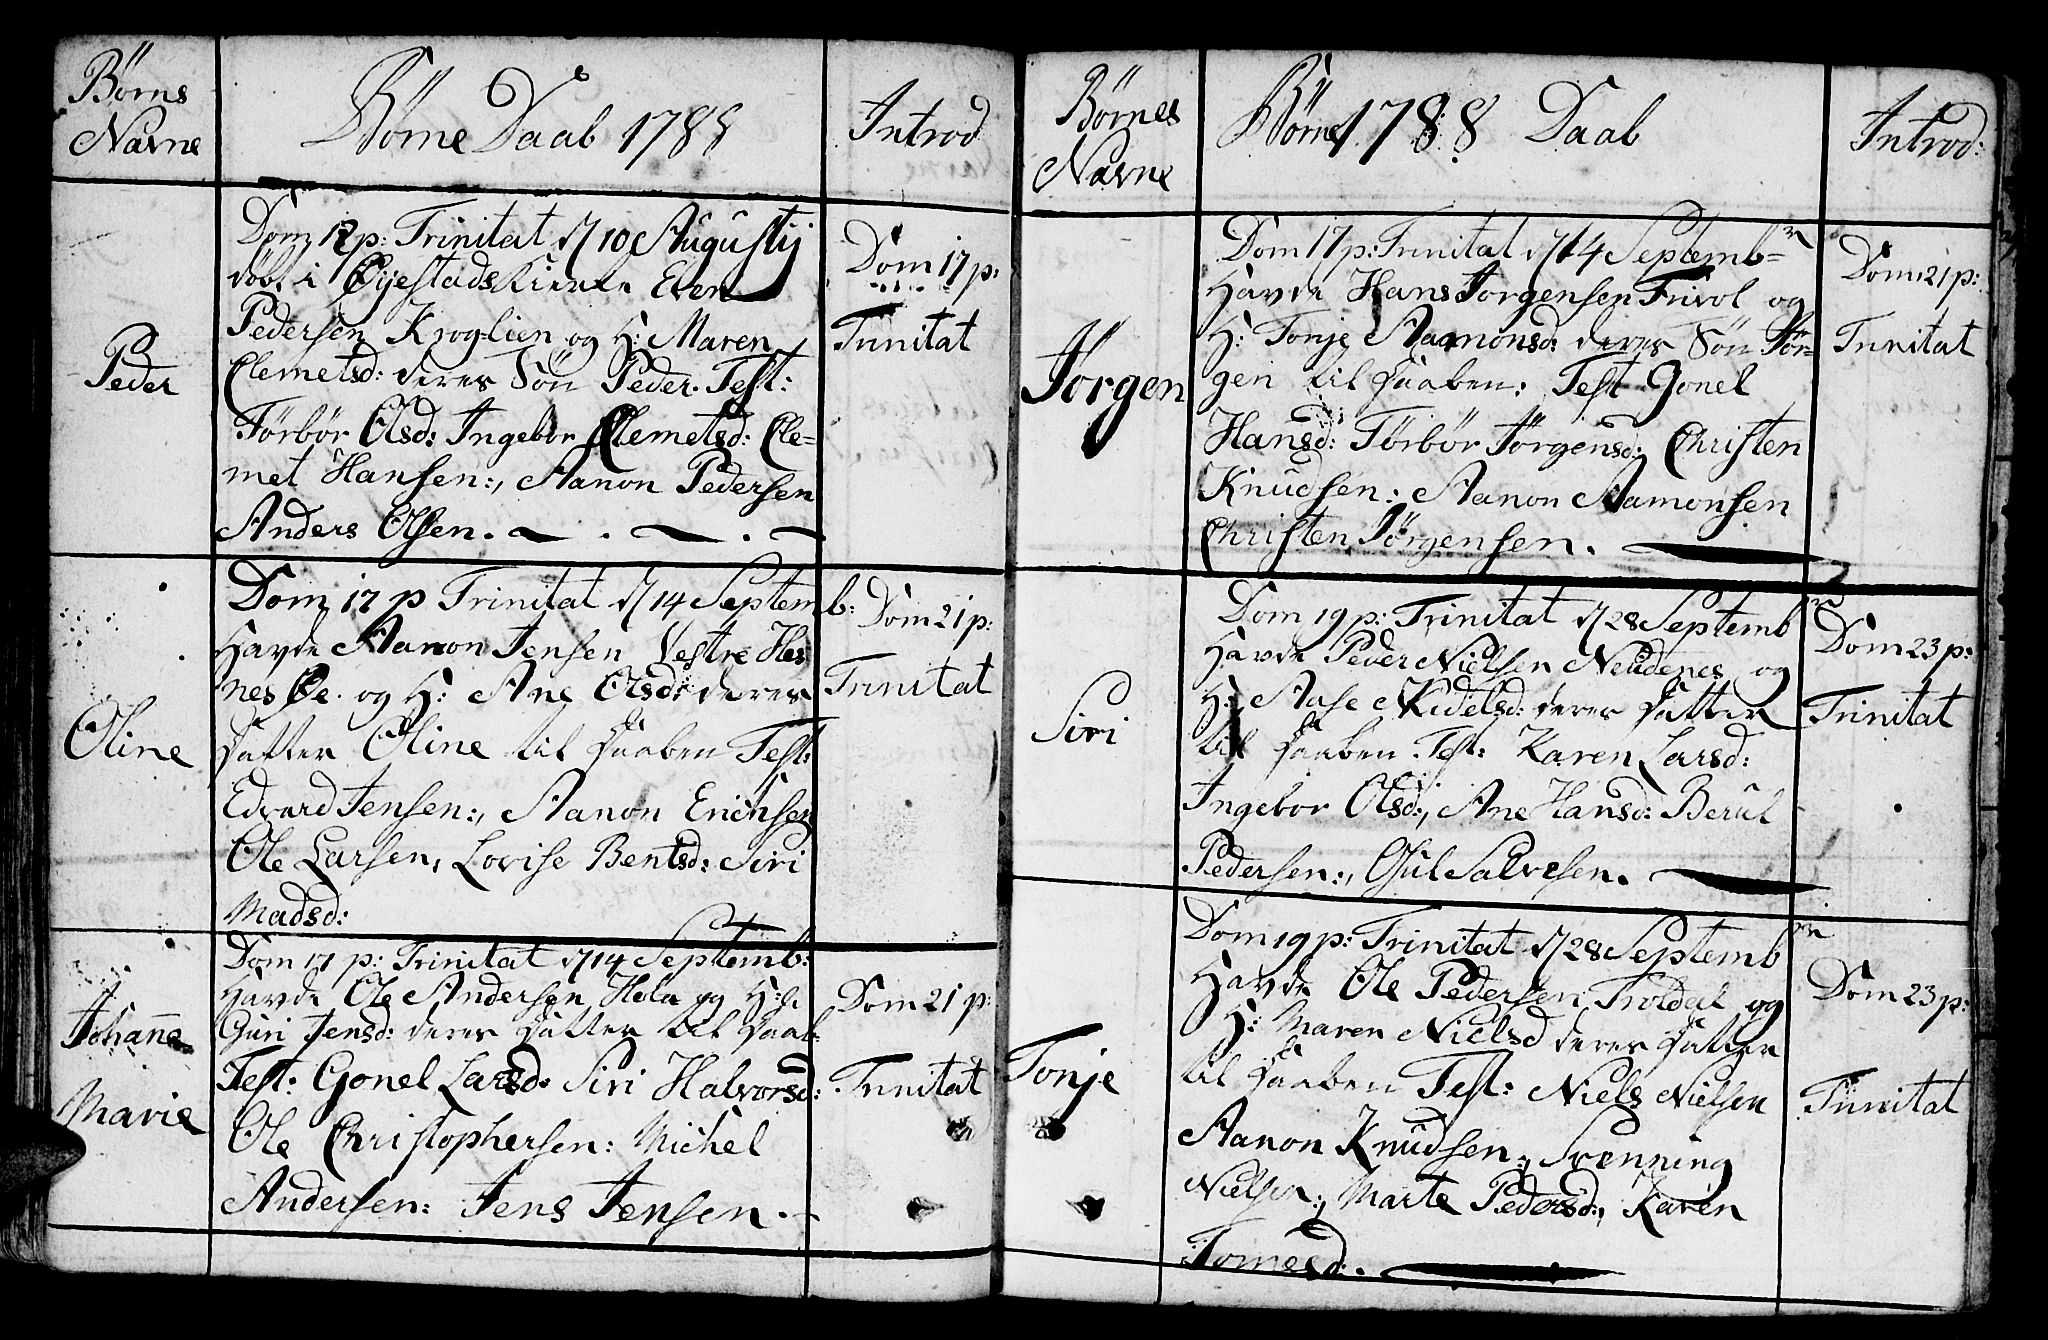 Børns
Navne
Børne Daab 1788
Introd
Peder
Dom 12 p: Trinitat d/10 Augustij
døbt i Øijestads Kirke Even
Pedersen Kroglien og H: Maren
Clemetsd: deres Søn Peder. Test:
Tørbør Olsd: Ingebor Clemetsd: Cle=
met Hansen:, Aanon Pedersen
Anders Olsen.
Dom 17 p:
Trinitat
Oline
Dom 17 p Trinitat d/14 Septemb:
Havde Aanon Jensen Vestre Hes
nes Øe. og H: Ane Olsd: deres
Datter Oline til Daaben Test:
Edvard Jensen:, Aanon Erichsen
Ole Larsen, Lovise Bentsd: Siri
Madsd:
Dom 21 p:
Trinitat
Johanne
Marie
Dom 17 p: Trinitat d/14 Septemb:
Havde Ole Andersen og H:
Guri Jensd: deres Datter til Daab:
Test: Gonel Larsd: Siri Halvorsd:
Ole Christophersen: Michel
Andersen: Jens Jensen.
Dom 21 p:
Trinitat
Børnes
Navne
Børne 1788 Daab
Introd:
Jørgen
Dom 17 p: Trinitat d/14 Septembr
Havde Hans Jørgensen Frivol og
H: Tonje Aamonsd: deres Søn Jør=
gen til Daaben: Test Gonel
Hansd: Tørbør Jørgensd: Christen
Knudsen: Aanon Aamonsen
Christen Jörgensen.
Dom 21 p:
Trinitat
Siri
Dom 19 p: Trinitat d/28 Septembr
Havde Peder Nielsen Neudenes og
H: Aase Nidelsd: deres Datter
til Daaben Test: Karen Larsd:
Ingebor Olsd:, Ane Hansd: Berul
Pedersen:, Gul Salvesen.
Dom 23 p:
Trinitat
Tonje
Dom 19 p: Trinitat d/28 Septembr
Havde Ole Pedersen Troldal og
H: Maren Nielsd deres Datter
til Daaben Test: Niels Nielsen
Aanon Knudsen:, Svenning
Nielsen:, Marte Pedersd:, Karen
Tomesd:.
Dom 23 p:
Trinitat